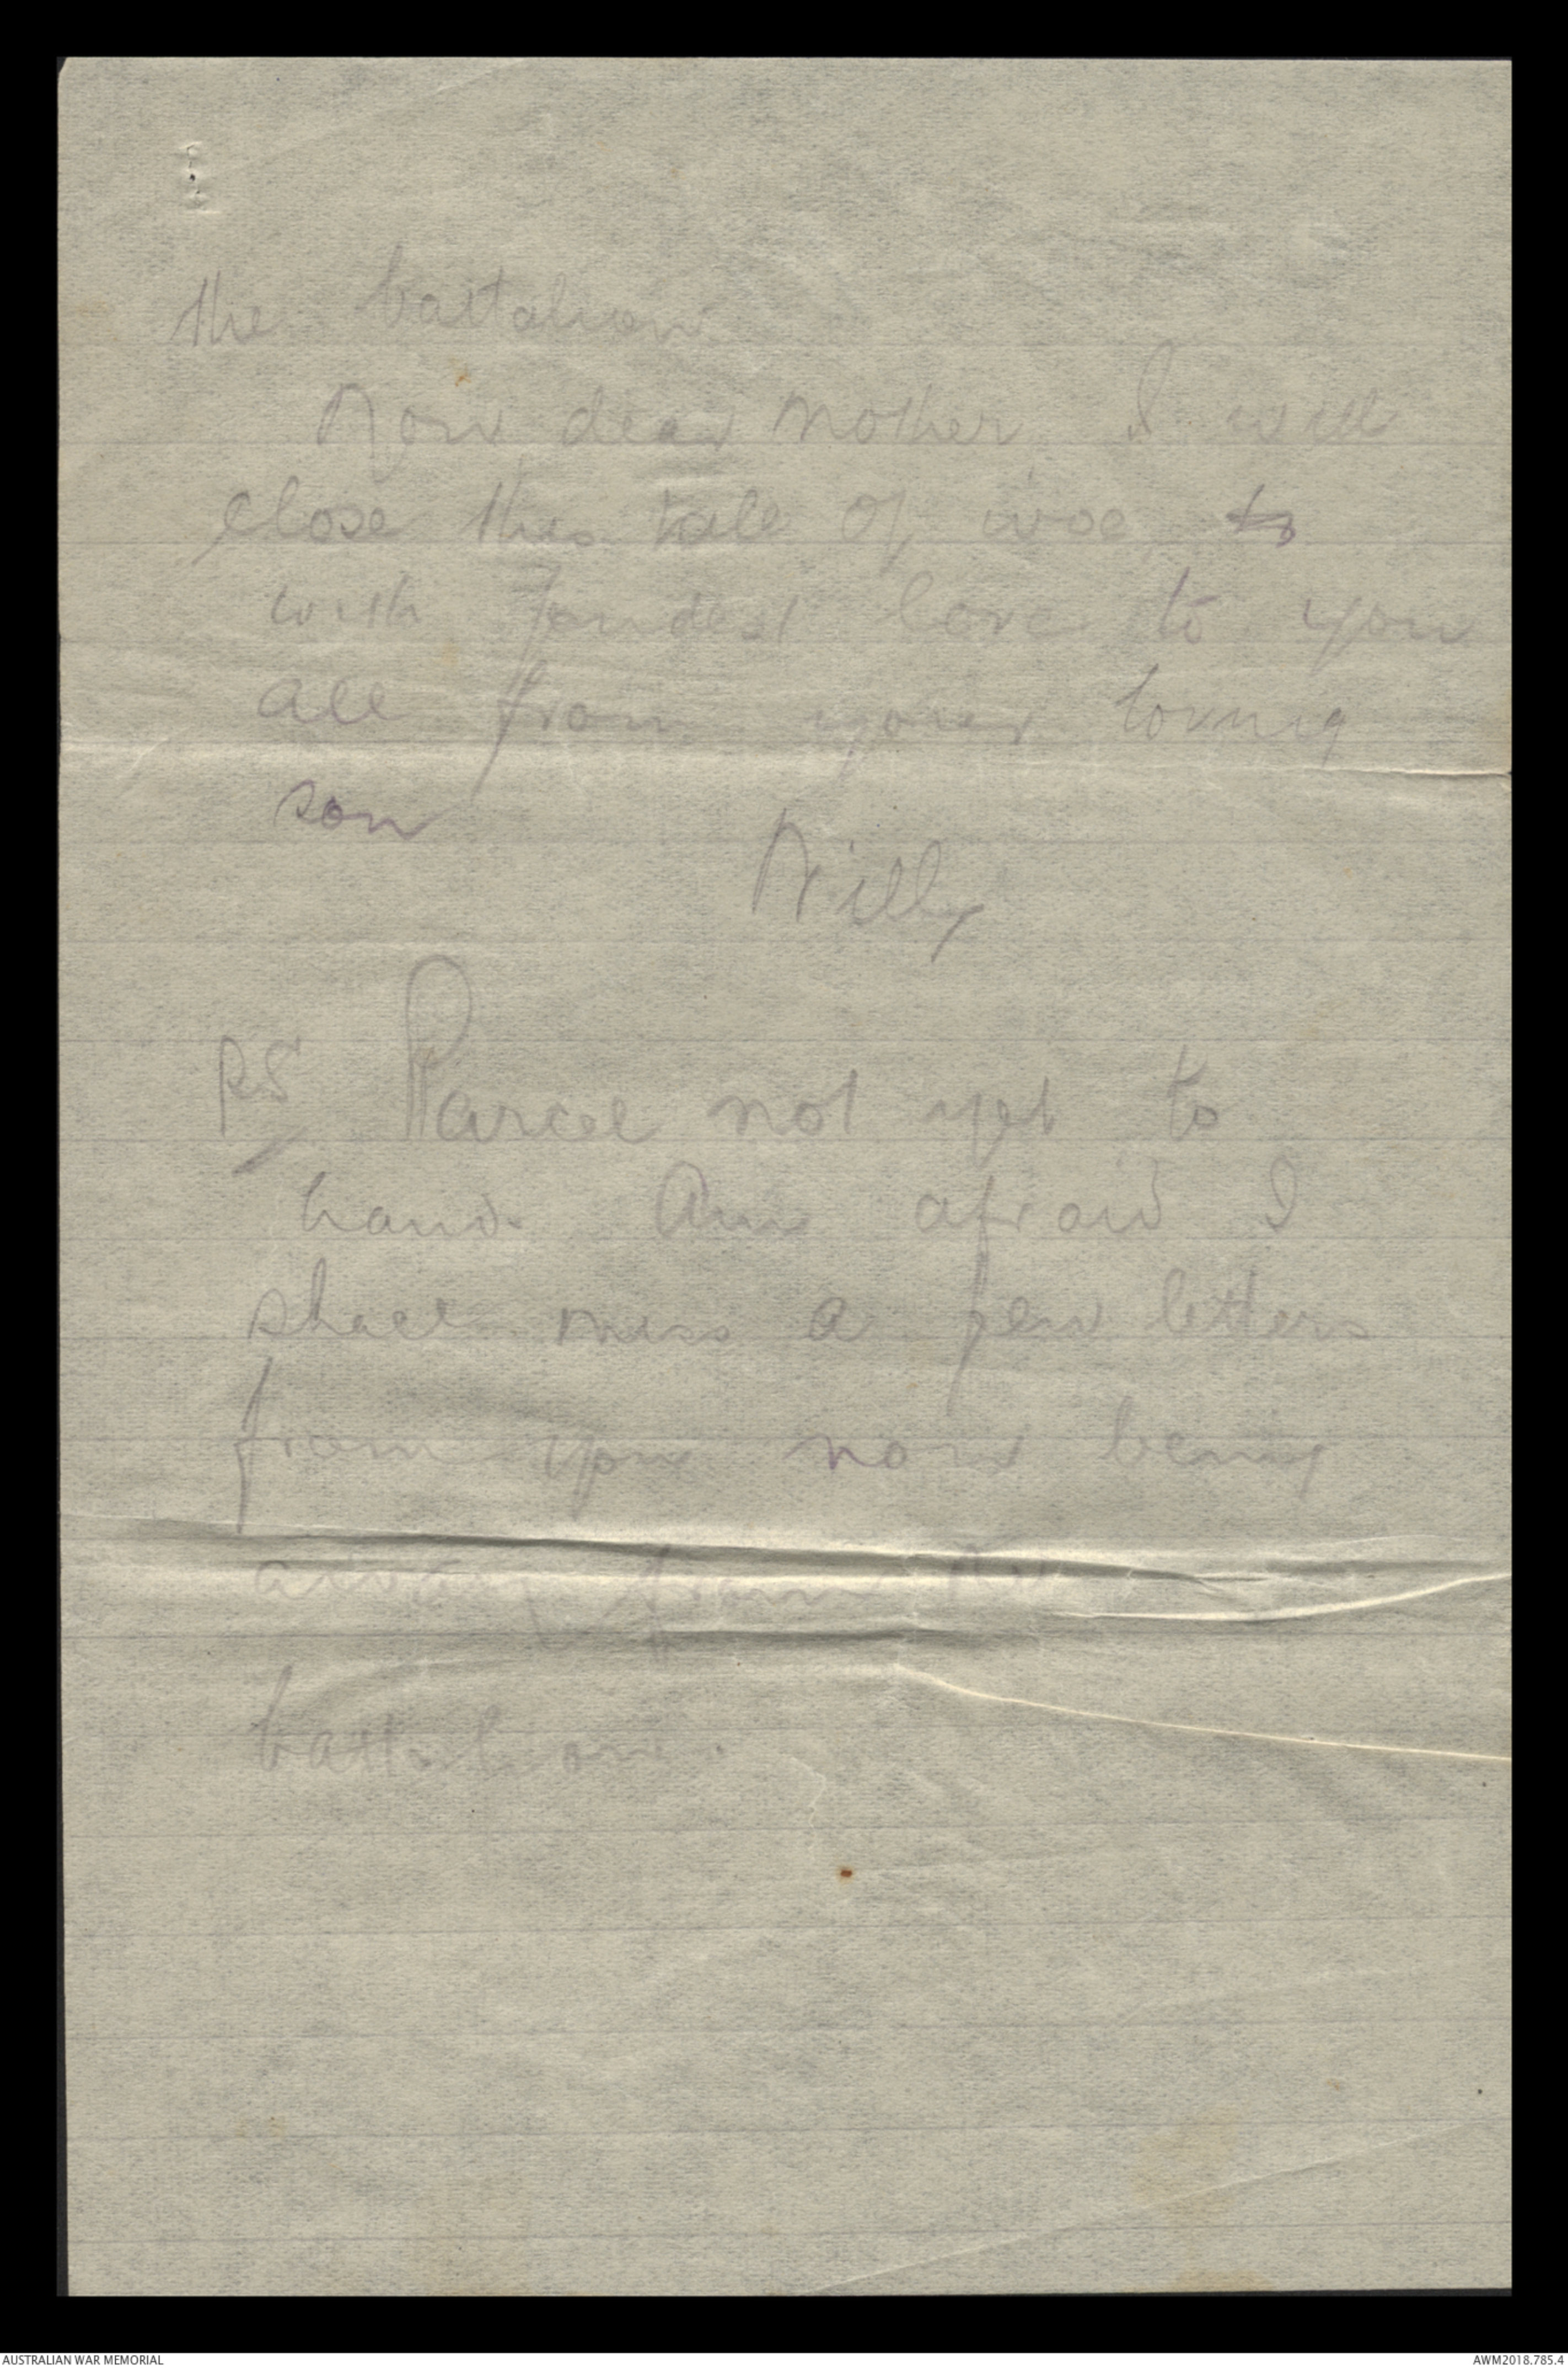 the battalion.
Now dear Mother I will
close this tale of woe to
with fondest love to you
all from your loving
son
Willy
P.S Parcel not yet to
hand. Am afraid I
shall miss a few letters
from you now being
away from the
battalion.
AUSTRALIAN WAR MEMORIAL
AWM2018.785.4